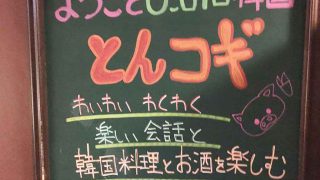 ようこそ
とんコギ
わいわい わくわく
楽しい 会話と
韓国料理とお酒を楽しむ